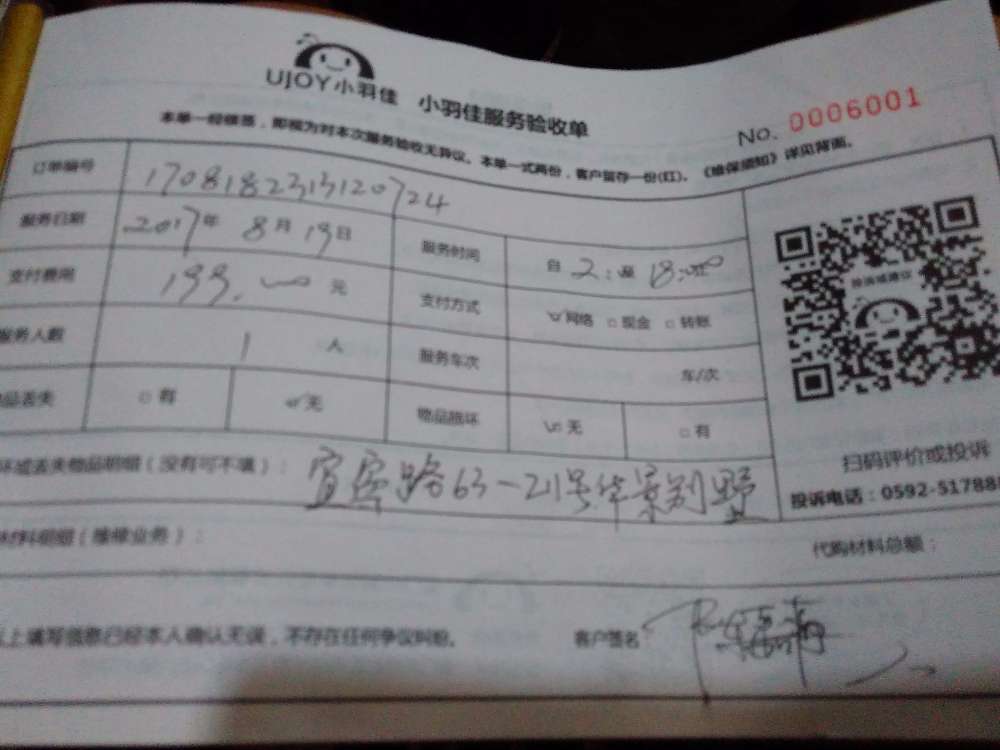 UJOY小羽佳 小羽佳服务验收单
No. 0006001
本单一经签署，即视为对本次服务验收无异议。本单一式两份，客户留存一份(红)。《维保须知》详见背面。
订单编号 1708182313120724
服务日期 2017年 8月19日 服务时间 自 2: 至 18:00
支付费用 199.00 元 支付方式 网络 现金 转账
服务人数 1 人 服务车次 车/次
品丢失 有 无 物品损坏 无 有
坏或丢失物品明细（没有可不填）： 宜宾路63-21号华景别墅
扫码评价或投诉
投诉电话：0592-517888
材料明细（维修业务）： 代购材料总额：
上填写信息已经本人确认无误，不存在任何争议纠纷。 客户签名